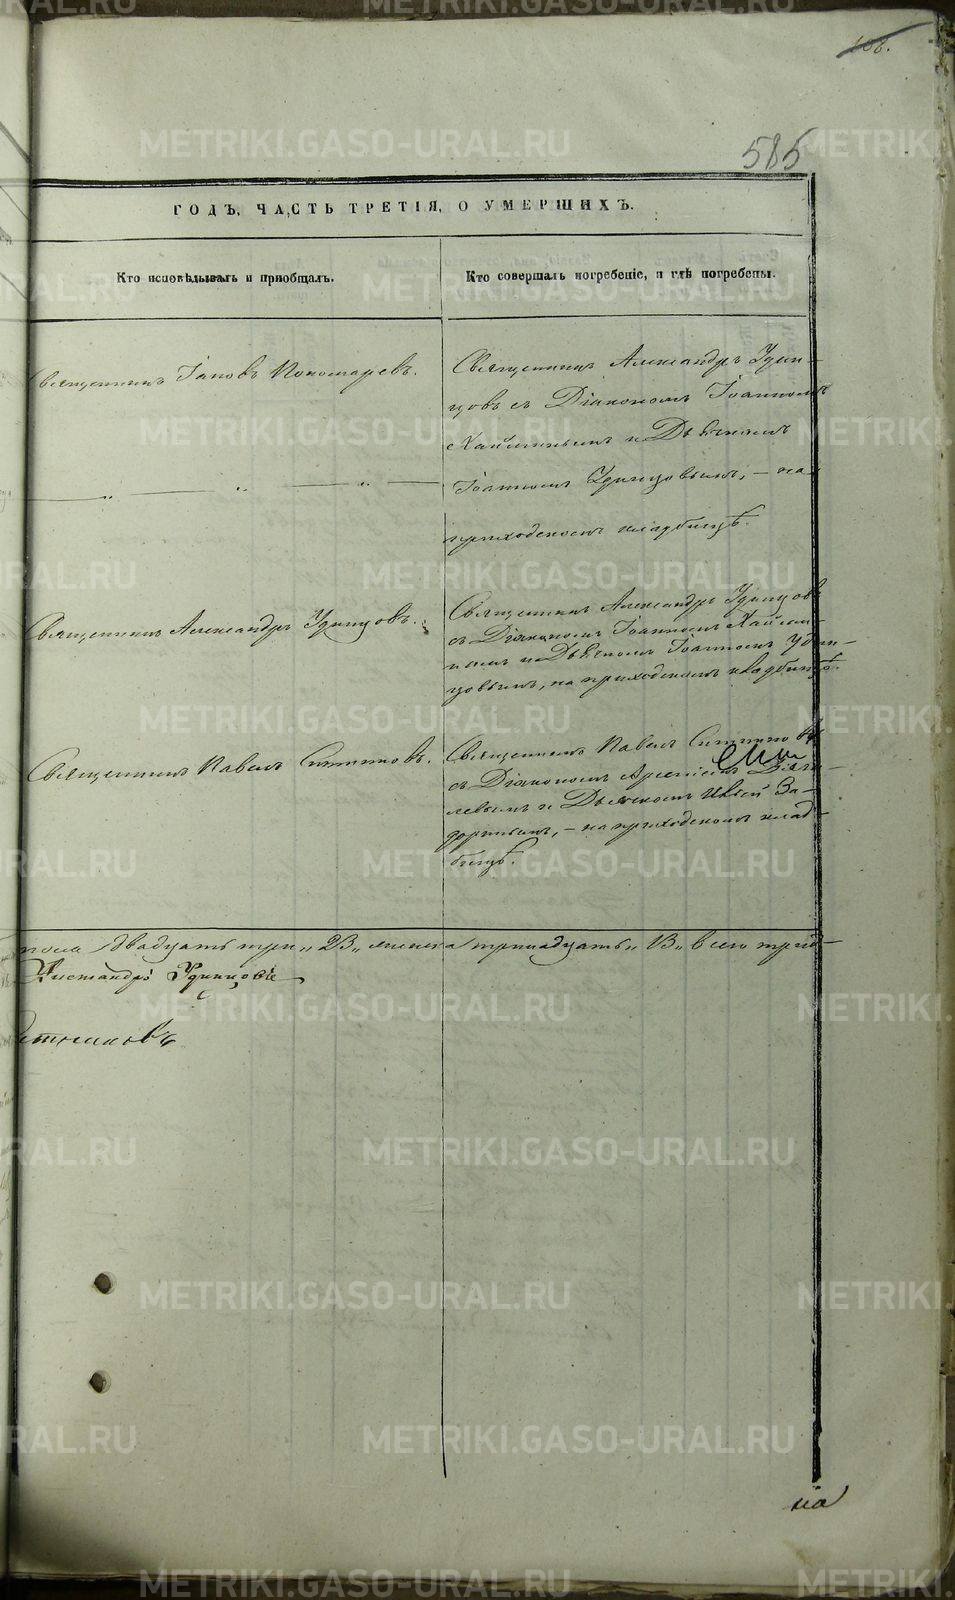 108.
585
ГОДЪ, ЧАСТЬ ТРЕТІЯ, О УМЕРШИХЪ.
Кто исповѣдывалъ и пріобщалъ.
Кто совершалъ погребеніе, и гдѣ погребены.
Священникъ Іаковъ Пономаревъ.
Священникъ Александръ Удин-
цовъ съ Діакономъ Іоанномъ
и Дьячкомъ
Іоанномъ Удинцовымъ, – на
приходскомъ кладбищѣ.
Священникъ Александръ Удинцовъ.
Священникъ Александръ Удинцовъ
съ Діакономъ Іоанномъ
и Дьячкомъ Іоанномъ Удин-
цовымъ, на приходскомъ кладбищѣ.
Священникъ Павелъ
Священникъ Павелъ
съ Діакономъ Арсеніемъ
и Дьячкомъ За-
, – на приходскомъ клад-
бищѣ.
пола двадцать три „ 23 „ женска тринадцать „ 13 „ всего трид-
Удинцовъ
на
METRIKI.GASO-URAL.RU